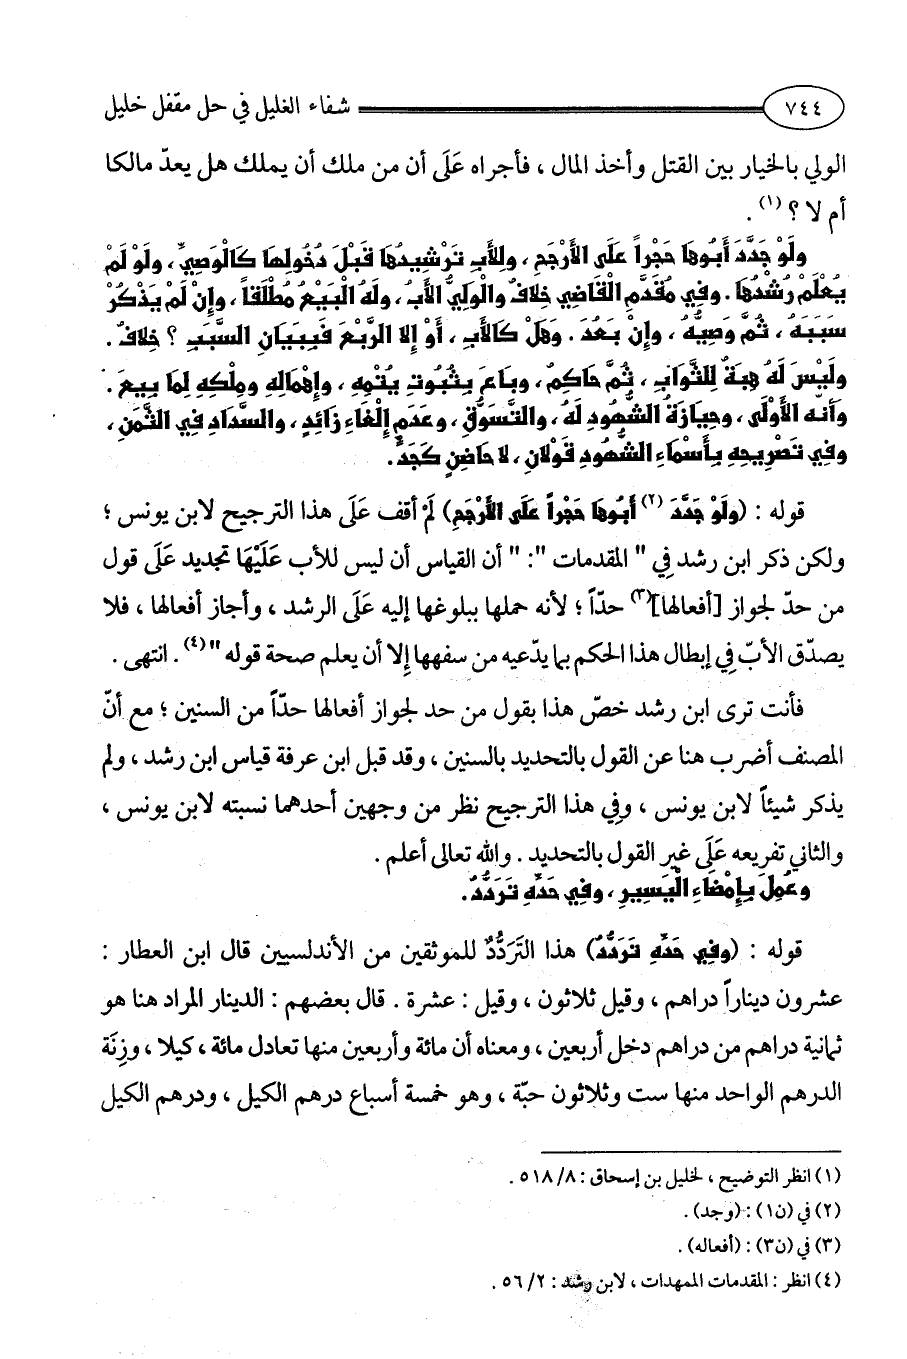 ٧٤٤ شفاء الغليل في حل مقفل خليل
الولي بالخيار بين القتل وأخذ المال ، فأجراه عَلَى أن من ملك أن يملك هل يعدّ مالكا
أم لا ؟ (١) .
ولَوْ جَدَّدَ أَبُوهَا حَجْراً عَلَى الأَرْجَحِ ، ولِلأَبِ تَرْشِيدُهَا قَبْلَ دُخُولِهَا كَالْوَصِيِّ ، ولَوْ لَمْ
يُعْلَمْ رُشْدُهَا . وفِي مُقَدَّمِ الْقَاضِي خِلافٌ والْوَلِيُّ الأَبُ ، ولَهُ الْبَيْعُ مُطْلَقاً ، وإِنْ لَمْ يَذْكُرْ
سَبَبَهُ ، ثُمَّ وَصِيُّهُ ، وإِنْ بَعُدَ . وهَلْ كَالأَبِ ، أَوْ إِلا الرَّبْعَ فَبِبَيَانِ السَّبَبِ ؟ خِلافٌ .
ولَيْسَ لَهُ هِبَةٌ لِلثَّوَابِ ، ثُمَّ حَاكِمٌ ، وبَاعَ بِثُبُوتِ يُتْمِهِ ، وإِهْمَالِهِ ومِلْكِهِ لِمَا بِيعَ .
وأَنَّه الأَوْلَى ، وحِيَازَةُ الشُّهُودِ لَهُ ، والتَّسَوُّقِ ، وعَدَمِ إِلْغَاءِ زَائِدٍ ، والسَّدَادِ فِي الثَّمَنِ ،
وفِي تَصْرِيحِهِ بِأَسْمَاءِ الشُّهُودِ قَوْلانِ ، لا حَاضِنٍ كَجَدٍّ .
قوله : (ولَوْ جَدَّدَ (٢) أَبُوهَا حَجْراً عَلَى الأَرْجَحِ) لَمْ أقف عَلَى هذا الترجيح لابن يونس ؛
ولكن ذكر ابن رشد فِي " المقدمات ": " أن القياس أن ليس للأب عَلَيْهَا تجديد عَلَى قول
من حدّ لجواز [أفعالها](٣) حدّاً ؛ لأنه حملها ببلوغها إليه عَلَى الرشد ، وأجاز أفعالها ، فلا
يصدّق الأبّ فِي إبطال هذا الحكم بما يدّعيه من سفهها إِلا أن يعلم صحة قوله " (٤) . انتهى .
فأنت ترى ابن رشد خصّ هذا بقول من حد لجواز أفعالها حدّاً من السنين ؛ مع أنّ
المصنف أضرب هنا عن القول بالتحديد بالسنين ، وقد قبل ابن عرفة قياس ابن رشد ، ولم
يذكر شيئاً لابن يونس ، وفِي هذا الترجيح نظر من وجهين أحدهما نسبته لابن يونس ،
والثاني تفريعه عَلَى غير القول بالتحديد . والله تعالى أعلم .
وعُمِلَ بِإِمْضَاءِ الْيَسِيرِ ، وفِي حَدِّهِ تَرَدُّدٌ .
قوله : (وفِي حَدِّهِ تَرَدُّدٌ) هذا التَّرَدُّدٌ للموثقين من الأندلسيين قال ابن العطار :
عشرون ديناراً دراهم ، وقيل ثلاثون ، وقيل : عشرة . قال بعضهم : الدينار المراد هنا هو
ثمانية دراهم من دراهم دخل أربعين ، ومعناه أن مائة وأربعين منها تعادل مائة ، كيلا ، وزِنَة
الدرهم الواحد منها ست وثلاثون حبّة ، وهو خمسة أسباع درهم الكيل ، ودرهم الكيل
(١) انظر التوضيح ، لخليل بن إسحاق : ٨/ ٥١٨ .
(٢) في (ن١) : (وجد) .
(٣) في (ن٣) : (أفعاله) .
(٤) انظر : المقدمات الممهدات ، لابن رشد : ٢/ ٥٦ .